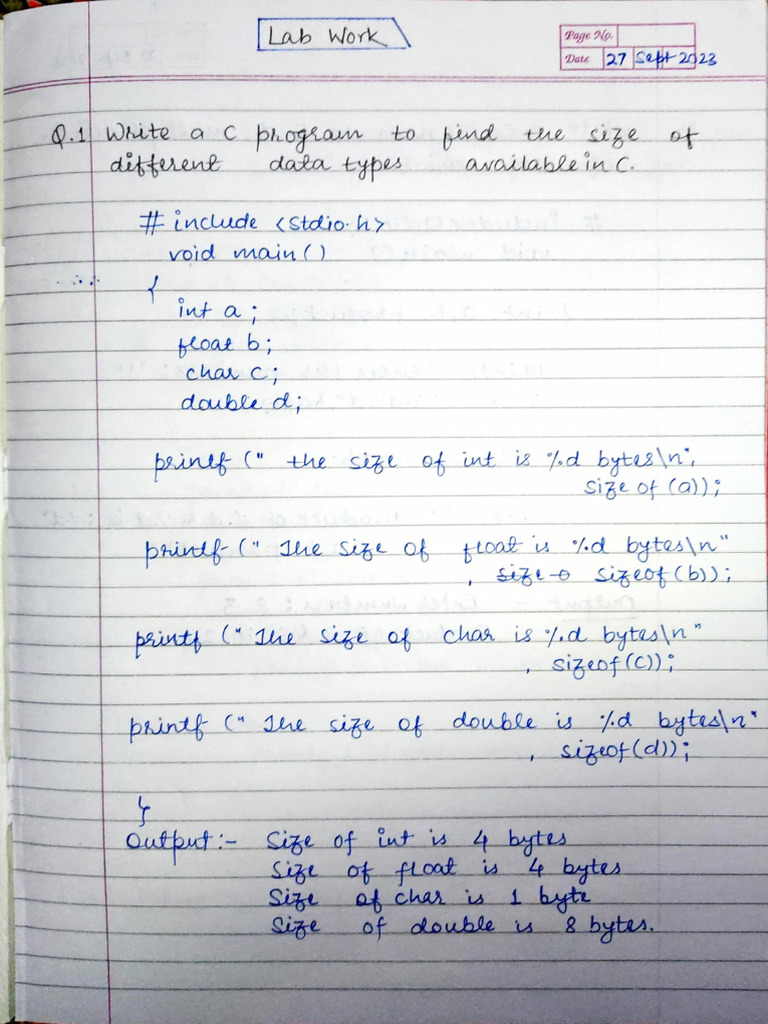 Lab Work
Page No.
Date 27 Sept 2023
Q.1 Write a C program to find the size of
different data types available in C.
# include <Stdio.h>
void main()
{
int a;
float b;
char c;
double d;
printf (" the size of int is %d bytes\n",
size of (a));
printf (" The size of float is %d bytes\n"
, sizeof (b));
printf (" The size of char is %d bytes\n"
, sizeof (c));
printf (" The size of double is %d bytes\n"
, sizeof (d));
}
Output:- Size of int is 4 bytes
Size of float is 4 bytes
Size of char is 1 byte
Size of double is 8 bytes.